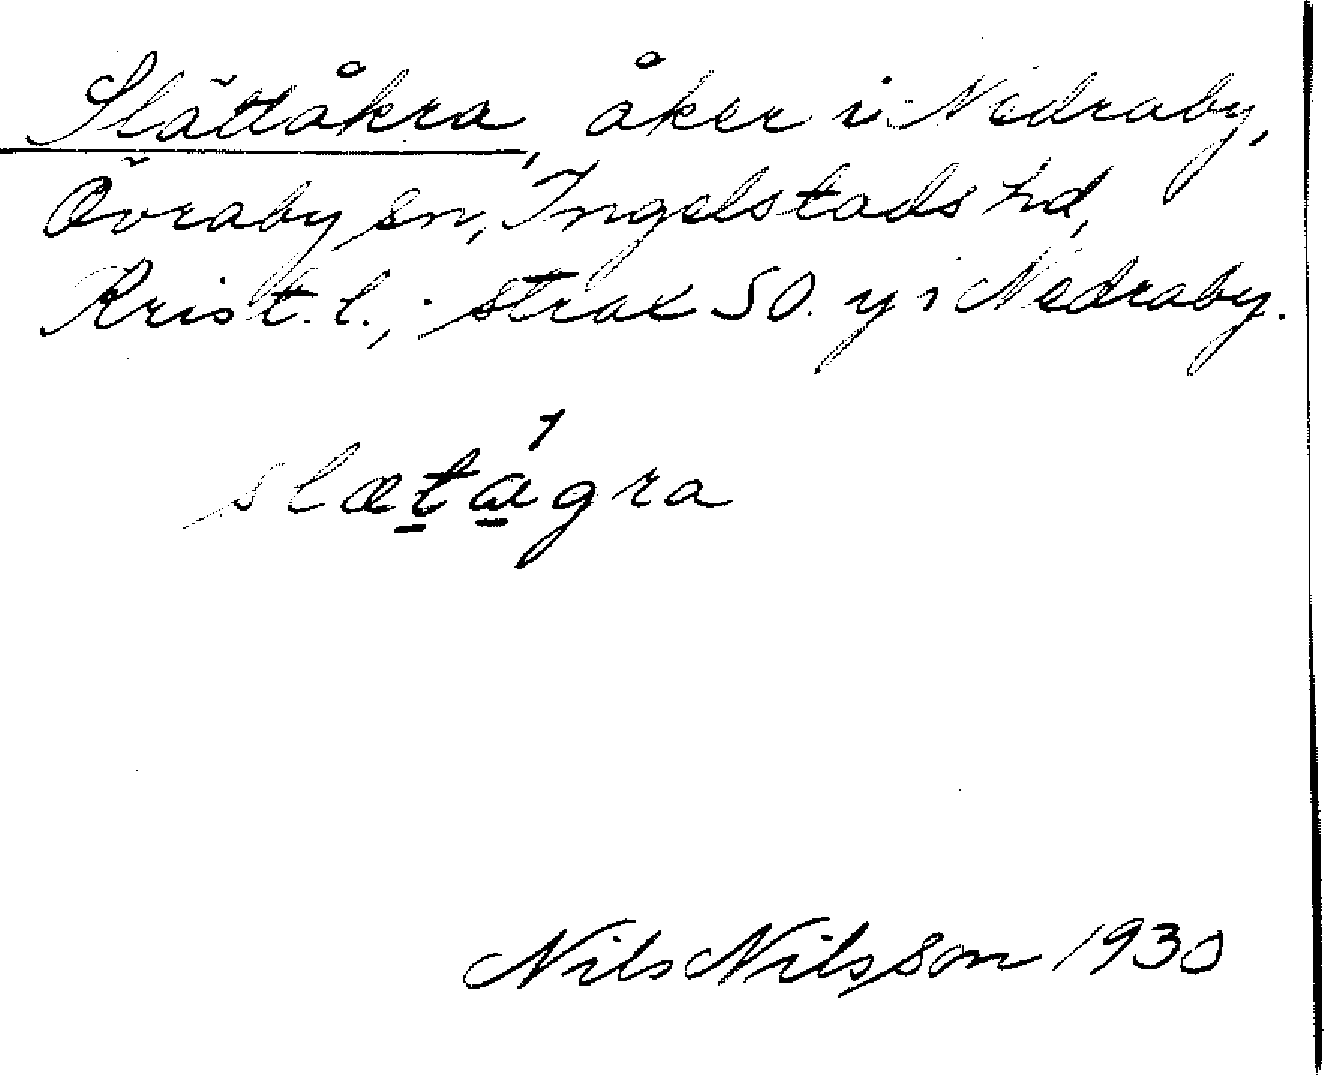 Slättåkra, åker i Nedraby,
Övraby sn, Ingelstads hd,
Krist. l., strax SO. y i Nedraby.
slætágra
Nils Nilsson 1930